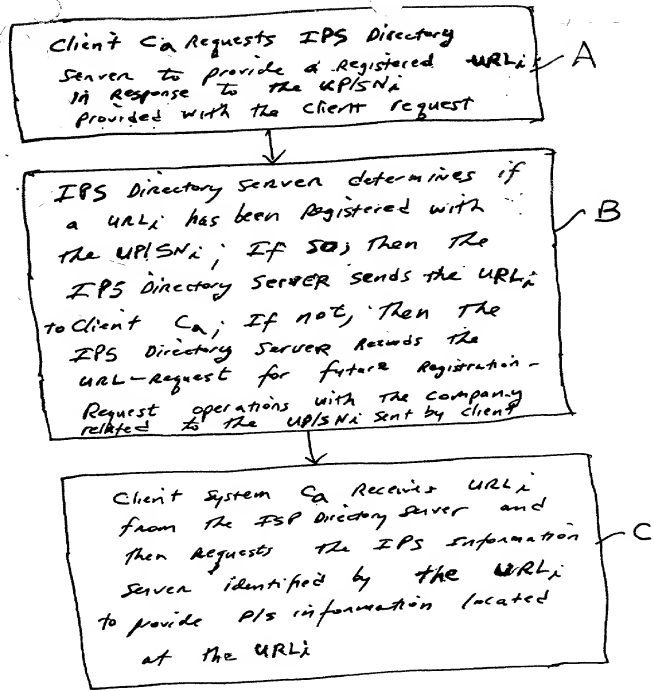 Client Ca Requests IPS Directory
Server to provide a Registered URLi
in Response to the UP/SNi
provided with the client request
A
IPS Directory Server determines if
a URLi has been Registered with
the UP/SNi; If so, then the
IPS Directory Server sends the URLi
to Client Ca; If not, then the
IPS Directory Server Records the
URL-Request for future Registration-
Request operations with the company
related to the UP/SNi sent by client
B
Client System Ca Receives URLi
from the ISP Directory Server and
then Requests the IPS Information
Server identified by the URLi
to provide P/s information located
at the URLi
C